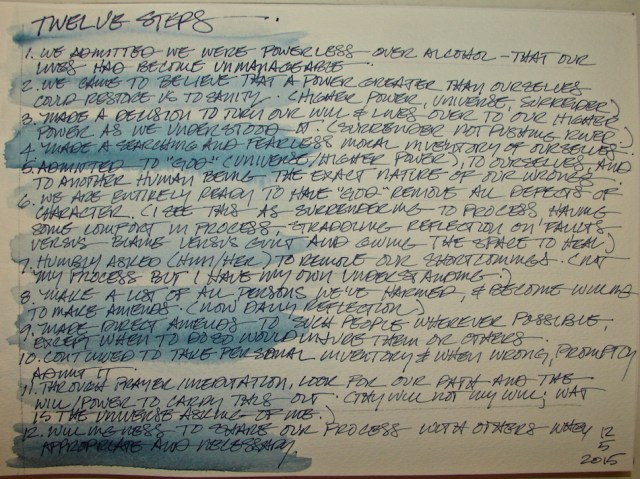 TWELVE STEPS
1. WE ADMITTED WE WERE POWERLESS OVER ALCOHOL - THAT OUR
LIVES HAD BECOME UNMANAGEABLE.
2. WE CAME TO BELIEVE THAT A POWER GREATER THAN OURSELVES
COULD RESTORE US TO SANITY. (HIGHER POWER, UNIVERSE, SURRENDER)
3. MADE A DECISION TO TURN OUR WILL & LIVES OVER TO OUR HIGHER
POWER AS WE UNDERSTOOD IT. (SURRENDER NOT PUSHING RIVER)
4. MADE A SEARCHING AND FEARLESS MORAL INVENTORY OF OURSELVES.
5. ADMITTED TO "GOD" (UNIVERSE/HIGHER POWER), TO OURSELVES, AND
TO ANOTHER HUMAN BEING THE EXACT NATURE OF OUR WRONGS.
6. WE ARE ENTIRELY READY TO HAVE "GOD" REMOVE ALL DEFECTS OF
CHARACTER. (I SEE THIS AS SURRENDERING TO PROCESS, HAVING
SOME COMFORT IN PROCESS, STRADDLING REFLECTION ON FAULTS
VERSUS BLAME VERSUS GUILT AND GIVING THE SPACE TO HEAL)
7. HUMBLY ASKED (HIM/HER) TO REMOVE OUR SHORTCOMINGS. (NOT
MY PROCESS BUT I HAVE MY OWN UNDERSTANDING.)
8. MAKE A LIST OF ALL PERSONS WE'VE HARMED, & BECOME WILLING
TO MAKE AMENDS. (NOW DAILY REFLECTION)
9. MADE DIRECT AMENDS TO SUCH PEOPLE WHEREVER POSSIBLE,
EXCEPT WHEN TO DO SO WOULD INJURE THEM OR OTHERS.
10. CONTINUED TO TAKE PERSONAL INVENTORY & WHEN WRONG, PROMPTLY
ADMIT IT.
11. THROUGH PRAYER/MEDITATION, LOOK FOR OUR PATH AND THE
WILL/POWER TO CARRY THIS OUT. (THY WILL NOT MY WILL; WAT
IS THE UNIVERSE ASKING OF ME.)
12. WILLINGNESS TO SHARE OUR PROCESS WITH OTHERS WHEN
APPROPRIATE AND NECESSARY.
12
5
2015